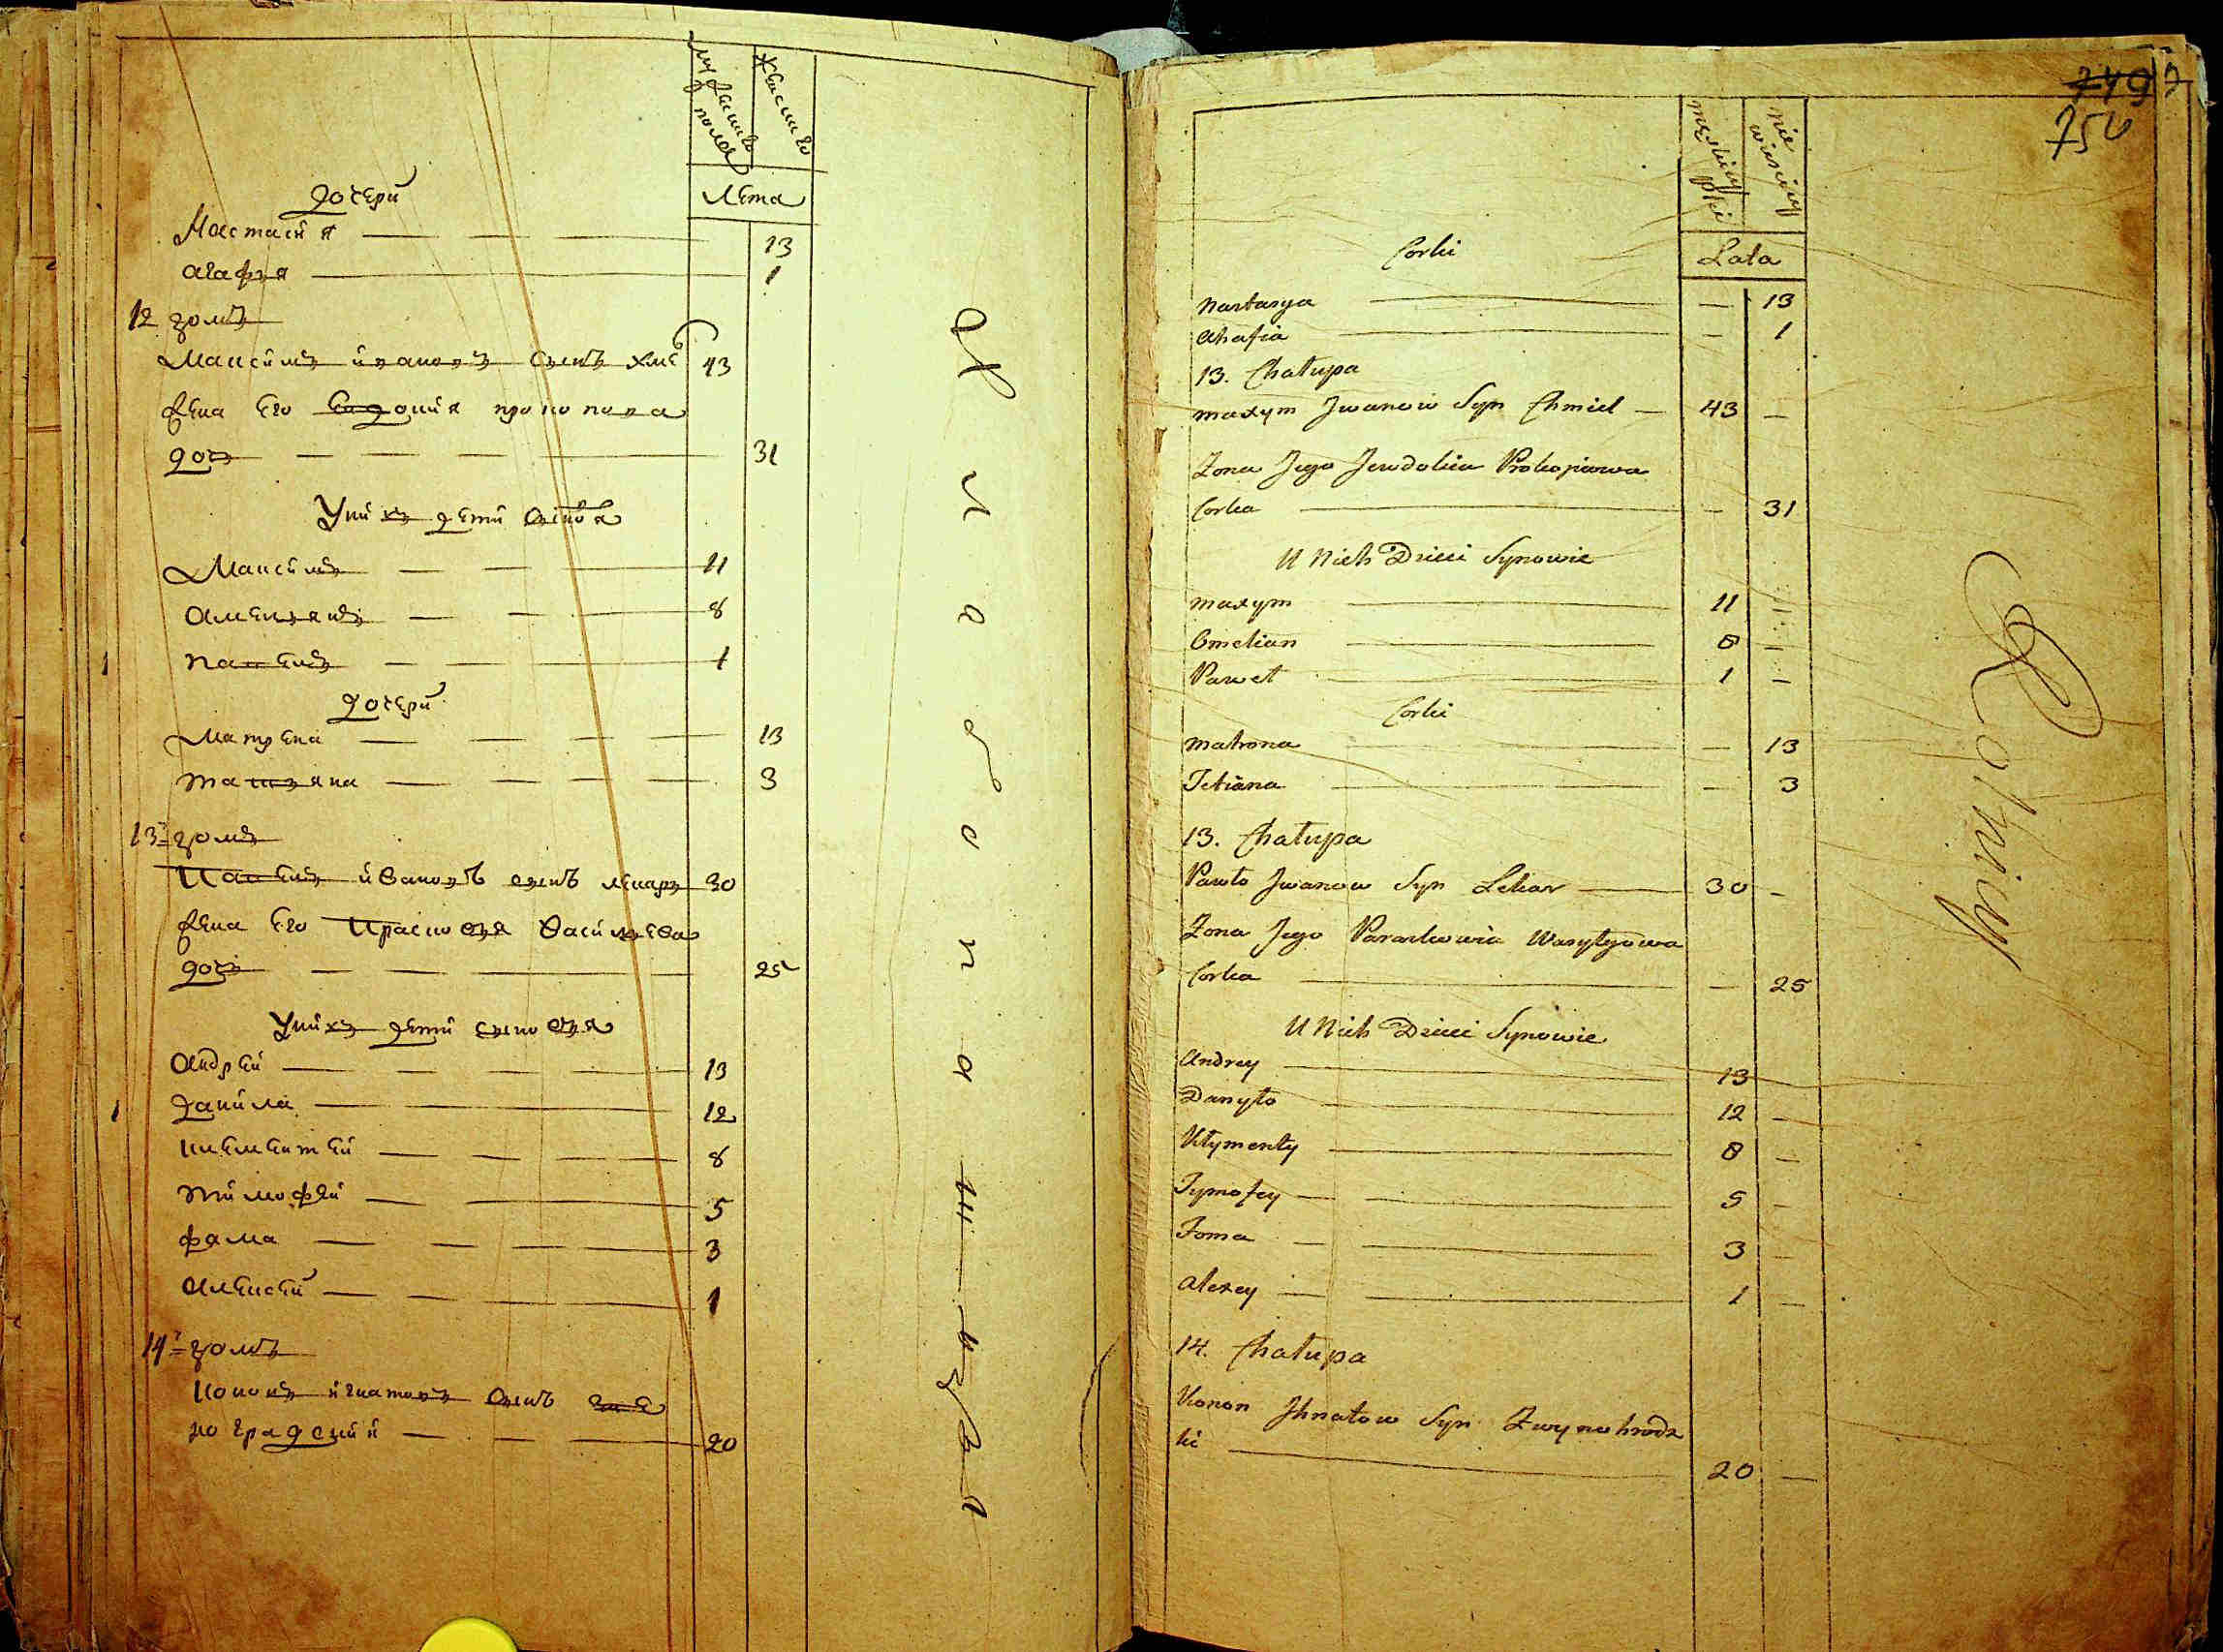 мужеска пола
женска го
Лета
дочери
Настасия 13
агафия 1
12 домъ
Максимъ ивановъ сынъ хме 43
жена его Евдокия прокопова
дочь 31
У них дети сыновя
Максимъ 11
Омельянъ 8
1 Павелъ 1
дочери
Матрена 13
татьяна 3
13 домъ
Павелъ ивановъ сынъ лекарь 30
жена его Прасковья Васильева
дочь 25
У нихъ дети сыновья
Андрей 13
1 данила 12
клементей 8
тимофей 5
фама 3
Алексей 1
14 домъ
Кононъ игнатовъ сынъ
ногradский 20
749
756
męskiey płci
nie wieściey
Lata
Corki
Nastasya — 13
Ahafia — 1
13. Chałupa
Maxym Jwanow Syn Chmiel 43 —
Zona Jego Jewdokia Prokopiowa
Corka — 31
U Nich Dzieci Synowie
Maxym 11 —
Omelian 8 —
Paweł 1 —
Corki
Matrona — 13
Tetiana — 3
13. Chałupa
Pawło Jwanow Syn Lekar 30 —
Zona Jego Paraskowia Wasylyowa
Corka — 25
U Nich Dzieci Synowie
Andrey 13
Danyło 12 —
Kłymenty 8 —
Tymofey 5 —
Foma 3 —
Alexey 1 —
14. Chałupa
Konon Jhnatow Syn Zwynohrodz
ki 20 —